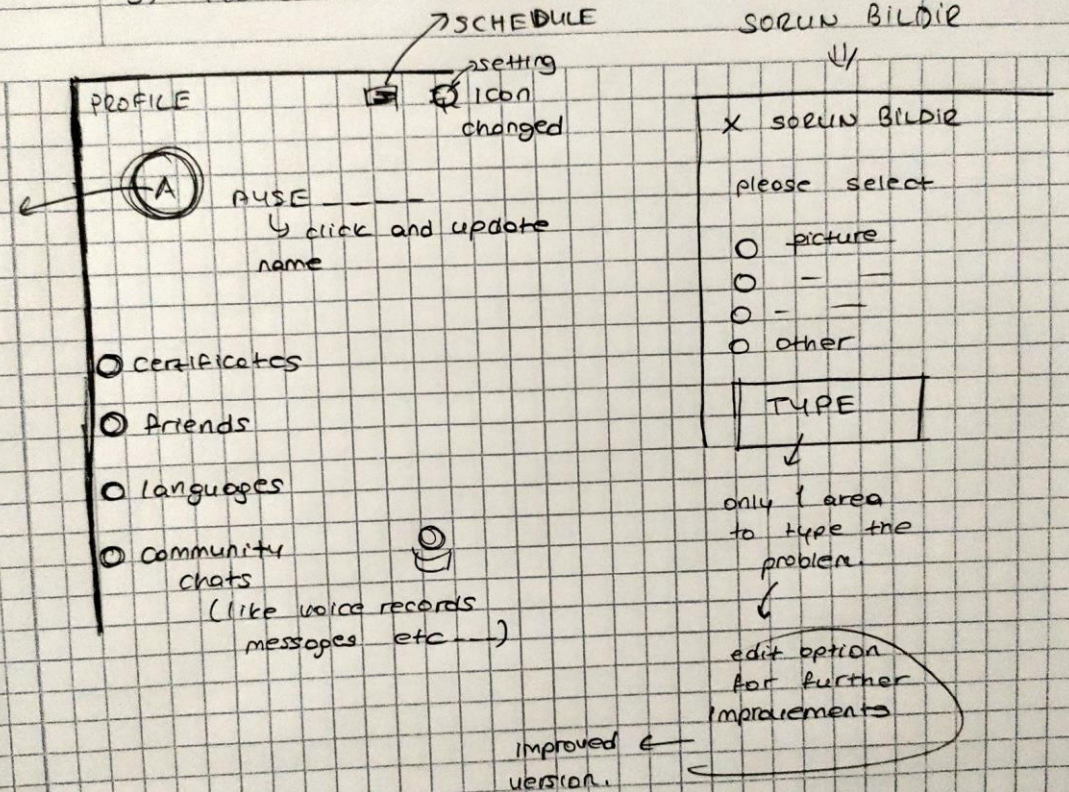 SCHEDULE
setting
icon
changed
PROFILE
A
AYSE ____
click and update
name
certificates
friends
languages
community
chats
(like voice records
messages etc ---)
SORUN BİLDİR
X SORUN BİLDİR
please select
picture
other
TYPE
only 1 area
to type the
problem.
edit option
for further
improvements
improved
version.